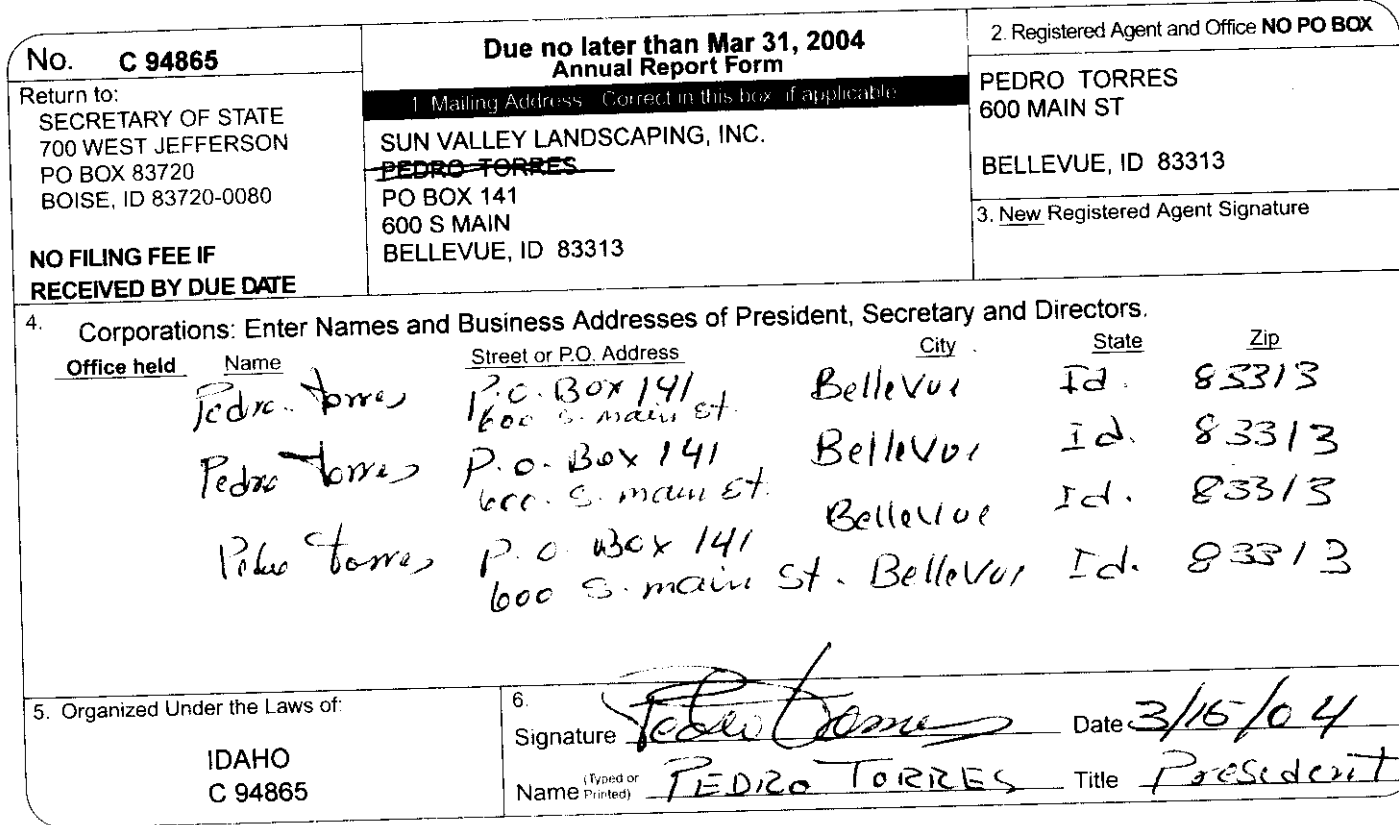 No. C 94865
Return to:
SECRETARY OF STATE
700 WEST JEFFERSON
PO BOX 83720
BOISE, ID 83720-0080
NO FILING FEE IF
RECEIVED BY DUE DATE
Due no later than Mar 31, 2004
Annual Report Form
1 Mailing Address Correct in this box if applicable
SUN VALLEY LANDSCAPING, INC.
PEDRO TORRES
PO BOX 141
600 S MAIN
BELLEVUE, ID 83313
2. Registered Agent and Office NO PO BOX
PEDRO TORRES
600 MAIN ST
BELLEVUE, ID 83313
3. New Registered Agent Signature
4. Corporations: Enter Names and Business Addresses of President, Secretary and Directors.
Office held Name Street or P.O. Address City State Zip
Pedro Torres P.O. Box 141 Bellevue Id. 83313
600 S. main St.
Pedro Torres P.O. Box 141 Bellevue Id. 83313
600. S. main St.
Bellevue Id. 83313
Pedro Torres P.O. Box 141
600 S. main St. Bellevue Id. 83313
5. Organized Under the Laws of:
IDAHO
C 94865
6.
Signature Pedro Torres Date 3/15/04
Name (Typed or Printed) PEDRO TORRES Title Presedent